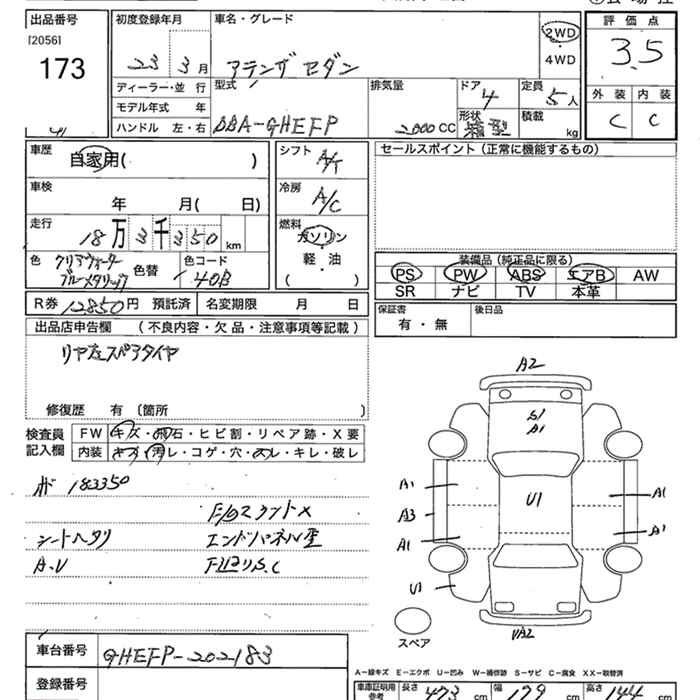 出品番号
[2056]
173
初度登録年月
23 3月
車名・グレード
アテンザ セダン
2WD
・
4WD
評価点
3.5
外装 内装
C C
ディーラー・並行
モデル年式 年
ハンドル 左・右
型式
DBA-GHEFP
排気量
2000CC
ドア
4
形状
箱型
定員
5人
積載
kg
車歴
自家用( )
車検
年 月( 日)
走行
18万3千350km
色
クリアウォーター
ブルーメタリック
色替
色コード
40B
シフト
A/T
冷房
A/C
燃料
ガソリン
軽・油
( )
セールスポイント(正常に機能するもの)
装備品(純正品に限る)
PS PW ABS エアB AW
SR ナビ TV 本革
R券 12850円 預託済
名変期限 月 日
保証書
有・無
後日品
出品店申告欄 (不良内容・欠品・注意事項等記載)
リヤ左スペアタイヤ
修復歴 有 〔箇所 〕
検査員
記入欄
FW キズ・飛石・ヒビ割・リペア跡・X要
内装 キズ・汚レ・コゲ・穴・スレ・キレ・破レ
183350
シートヘタリ
エンドパネル歪
A.V
A2
S1
A1
A1
A3
A1
U1
U1
A1
A1
スペア
車台番号
GHEFP-202183
登録番号
A-線キズ E-エクボ U-凹み W-補修跡 S-サビ C-腐食 XX-取替済
車庫証明用
参考
長さ 473 cm
幅 179 cm
高さ 144 cm